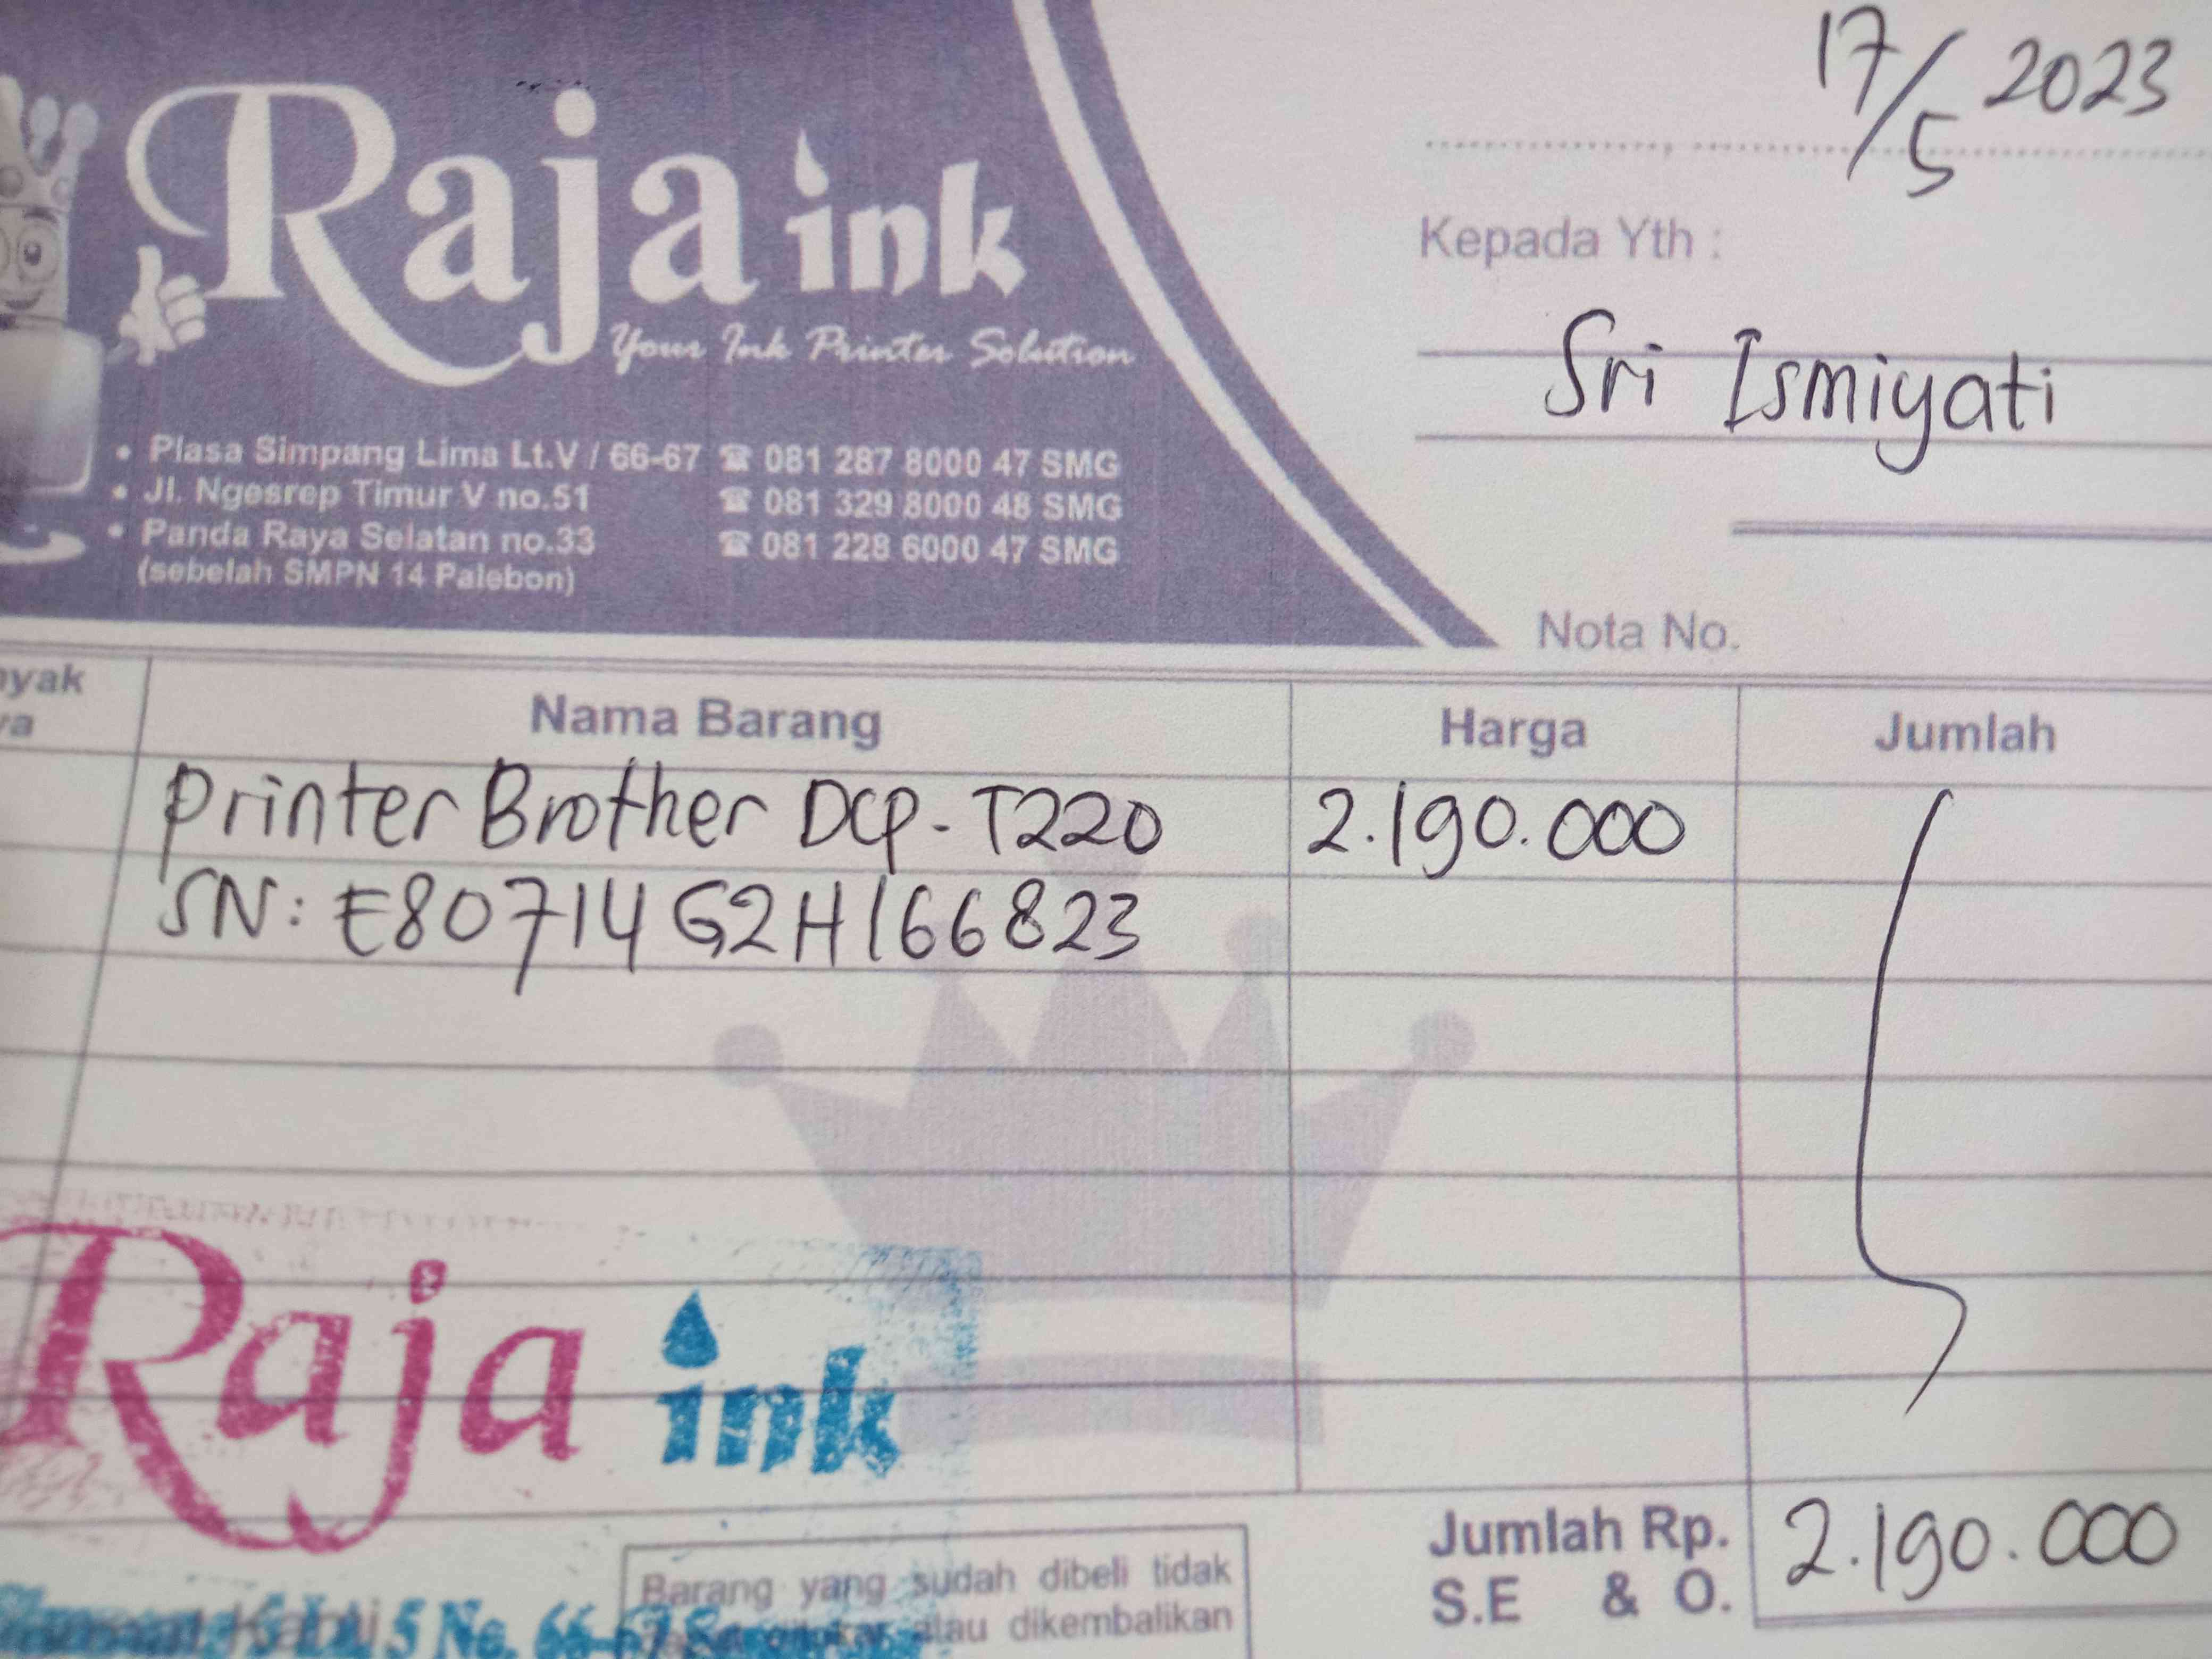 Raja ink
Your Ink Printer Solution
• Plasa Simpang Lima Lt.V / 66-67 ☎ 081 287 8000 47 SMG
• Jl. Ngesrep Timur V no.51 ☎ 081 329 8000 48 SMG
• Panda Raya Selatan no.33 ☎ 081 228 6000 47 SMG
(sebelah SMPN 14 Palebon)
17/5 2023
Kepada Yth :
Sri Ismiyati
Nota No.
nyak
ya
Nama Barang Harga Jumlah
Printer Brother DCP-T220 2.190.000
SN: E80714G2H166823
Raja ink
Jumlah Rp. 2.190.000
S.E & O.
Barang yang sudah dibeli tidak
atau dikembalikan
5 No. 66-67